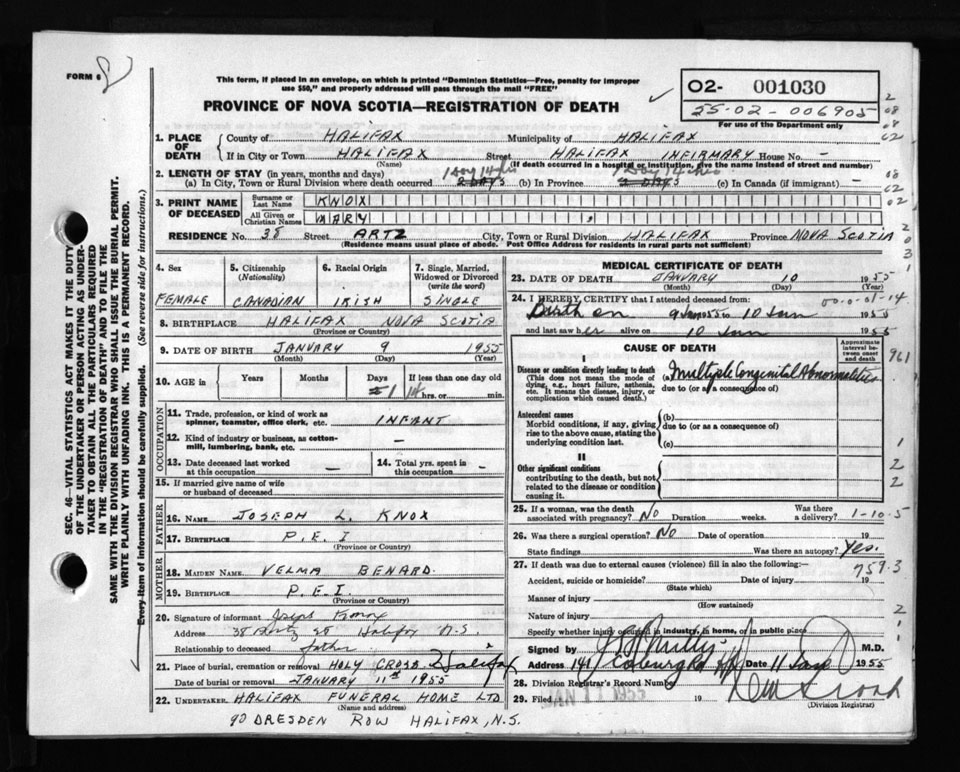 FORM 6
This form, if placed in an envelope, on which is printed "Dominion Statistics—Free, penalty for improper
use $50," and properly addressed will pass through the mail "FREE"
PROVINCE OF NOVA SCOTIA—REGISTRATION OF DEATH
02- 001030
55-02-006905
For use of the Department only
SEC. 46—VITAL STATISTICS ACT MAKES IT THE DUTY
OF THE UNDERTAKER OR PERSON ACTING AS UNDER-
TAKER TO OBTAIN ALL THE PARTICULARS REQUIRED
IN THE "REGISTRATION OF DEATH" AND TO FILE THE
SAME WITH THE DIVISION REGISTRAR WHO SHALL ISSUE THE BURIAL PERMIT.
WRITE PLAINLY WITH UNFADING INK. THIS IS A PERMANENT RECORD.
Every item of information should be carefully supplied. (See reverse side for instructions.)
1. PLACE OF DEATH County of HALIFAX Municipality of HALIFAX
If in City or Town HALIFAX Street HALIFAX INFIRMARY House No. -
(Name) (If death occurred in a hospital or institution, give the name instead of street and number)
2. LENGTH OF STAY (in years, months and days) 1 Day 14 hrs 1 Day 14 hrs
(a) In City, Town or Rural Division where death occurred 2 DAYS (b) In Province 2 DAYS (c) In Canada (if immigrant) -
3. PRINT NAME OF DECEASED Surname or Last Name KNOX
All Given or Christian Names MARY
RESIDENCE No. 38 Street ARTZ City, Town or Rural Division HALIFAX Province NOVA SCOTIA
(Residence means usual place of abode. Post Office Address for residents in rural parts not sufficient)
4. Sex FEMALE
5. Citizenship (Nationality) CANADIAN
6. Racial Origin IRISH
7. Single, Married, Widowed or Divorced (write the word) SINGLE
8. BIRTHPLACE HALIFAX NOVA SCOTIA
(Province or Country)
9. DATE OF BIRTH JANUARY 9 1955
(Month) (Day) (Year)
10. AGE in Years Months Days 1 If less than one day old 14 hrs. or min.
OCCUPATION
11. Trade, profession, or kind of work as spinner, teamster, office clerk, etc. INFANT
12. Kind of industry or business, as cotton-mill, lumbering, bank, etc. -
13. Date deceased last worked at this occupation -
14. Total yrs. spent in this occupation -
15. If married give name of wife or husband of deceased
FATHER
16. NAME JOSEPH L. KNOX
17. BIRTHPLACE P.E.I
(Province or Country)
MOTHER
18. MAIDEN NAME VELMA BENARD.
19. BIRTHPLACE P.E.I
(Province or Country)
20. Signature of informant Joseph Knox
Address 38 Artz St Halifax N.S.
Relationship to deceased father
21. Place of burial, cremation or removal HOLY CROSS Halifax
Date of burial or removal JANUARY 11th 1955
22. UNDERTAKER HALIFAX FUNERAL HOME LTD
(Name and address)
90 DRESDEN ROW HALIFAX, N.S.
MEDICAL CERTIFICATE OF DEATH
23. DATE OF DEATH JANUARY 10 1955
(Month) (Day) (Year)
24. I HEREBY CERTIFY that I attended deceased from:
9 Jan 1955 to 10 Jan 1955
and last saw her alive on 10 Jan 1955
CAUSE OF DEATH
Approximate interval between onset and death
I
Disease or condition directly leading to death
(This does not mean the mode of dying, e.g., heart failure, asthenia, etc. It means the disease, injury, or complication which caused death.)
(a) Multiple Congenital Abnormalities
due to (or as a consequence of)
Antecedent causes
Morbid conditions, if any, giving rise to the above cause, stating the underlying condition last.
(b)
due to (or as a consequence of)
(c)
II
Other significant conditions
contributing to the death, but not related to the disease or condition causing it.
961
1
2
2
25. If a woman, was the death associated with pregnancy? NO Duration weeks. Was there a delivery? 1-10-5
26. Was there a surgical operation? NO Date of operation 19
State findings Was there an autopsy? Yes.
27. If death was due to external causes (violence) fill in also the following:— 759.3
Accident, suicide or homicide? Date of injury 19
(State which)
Manner of injury
(How sustained)
Nature of injury
Specify whether injury occurred in industry, in home, or in public place
Signed by M.D.
Address 141 Coburg Rd Date 11 Jan 1955
28. Division Registrar's Record Number
29. Filed JAN 11 1955 19
(Division Registrar)